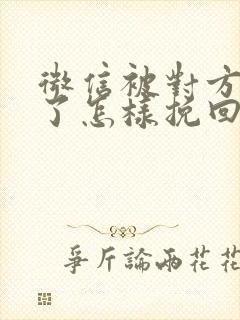 微信被對方
了怎樣挽回
爭斤論兩花花